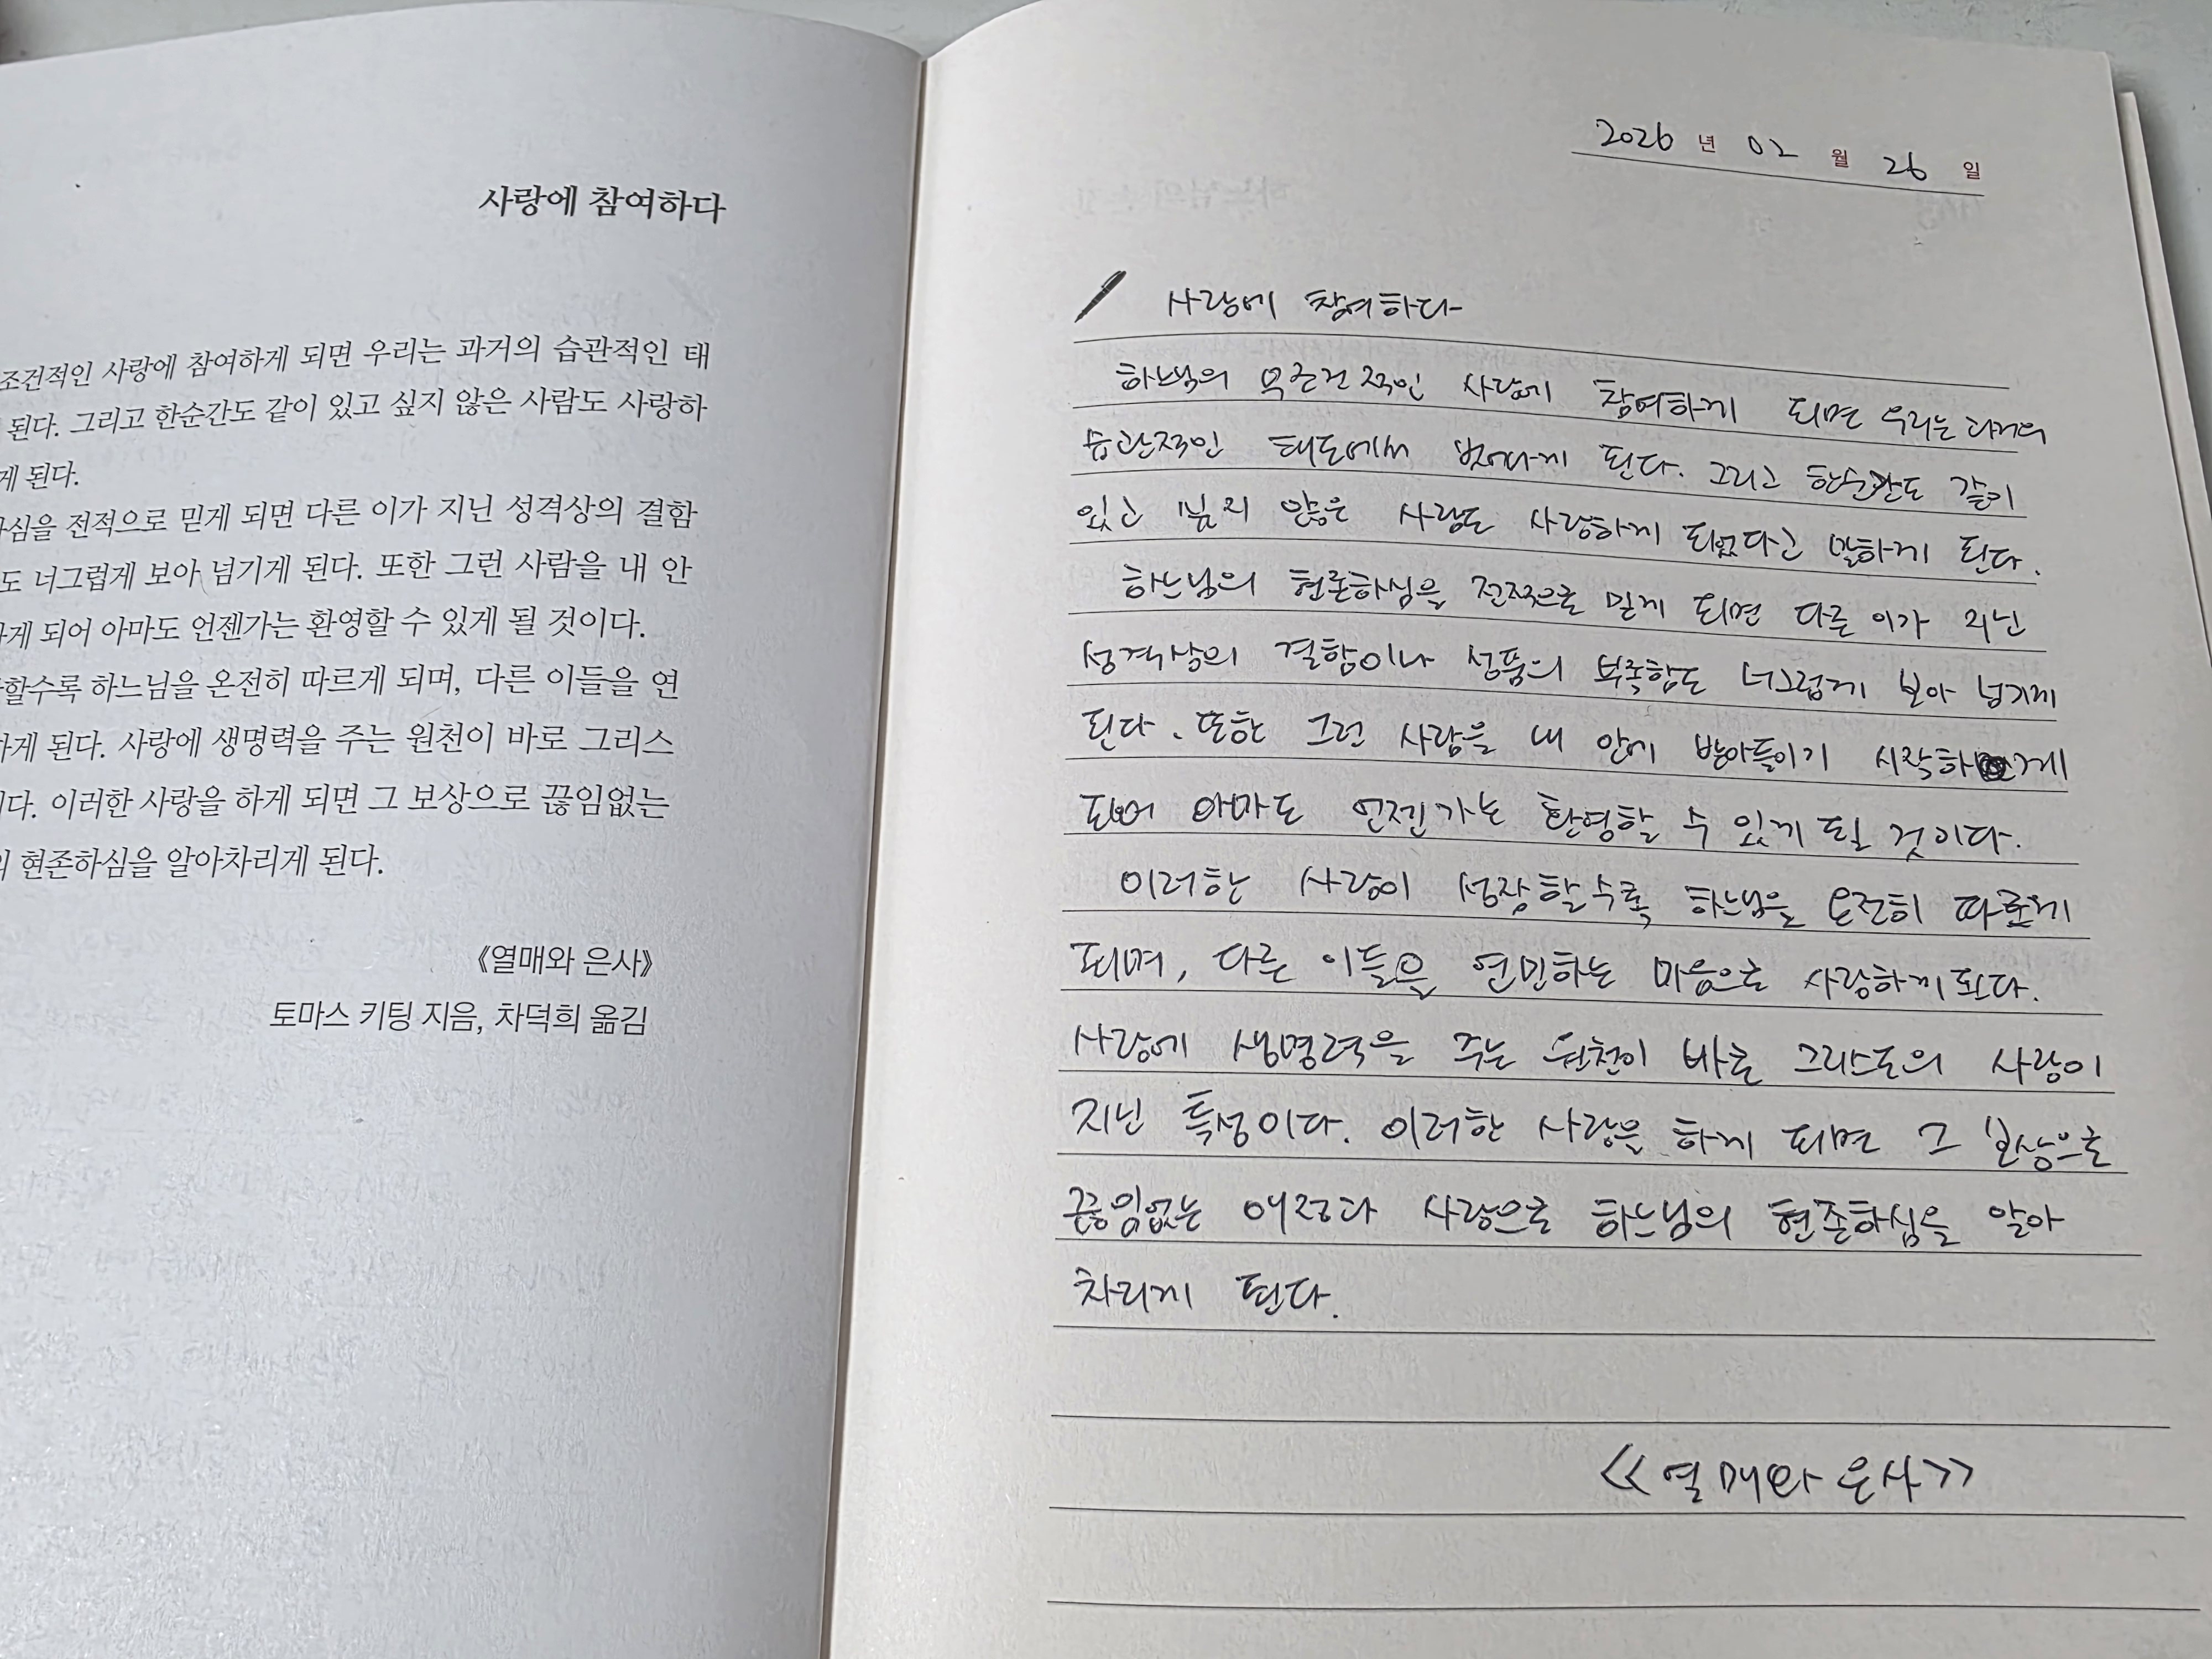 사랑에 참여하다
조건적인 사랑에 참여하게 되면 우리는 과거의 습관적인 태
된다. 그리고 한순간도 같이 있고 싶지 않은 사람도 사랑하
게 된다.
하심을 전적으로 믿게 되면 다른 이가 지닌 성격상의 결함
도 너그럽게 보아 넘기게 된다. 또한 그런 사람을 내 안
하게 되어 아마도 언젠가는 환영할 수 있게 될 것이다.
할수록 하느님을 온전히 따르게 되며, 다른 이들을 연
하게 된다. 사랑에 생명력을 주는 원천이 바로 그리스
이다. 이러한 사랑을 하게 되면 그 보상으로 끊임없는
의 현존하심을 알아차리게 된다.
《열매와 은사》
토마스 키팅 지음, 차덕희 옮김
2026 년 02 월 26 일
사랑에 참여하다
하느님의 무조건적인 사랑에 참여하게 되면 우리는 과거의
습관적인 태도에서 벗어나게 된다. 그리고 한순간도 같이
있고 싶지 않은 사람도 사랑하게 되었다고 말하게 된다.
하느님의 현존하심을 전적으로 믿게 되면 다른 이가 지닌
성격상의 결함이나 성품의 부족함도 너그럽게 보아 넘기게
된다. 또한 그런 사람을 내 안에 받아들이기 시작하게
되어 아마도 언젠가는 환영할 수 있게 될 것이다.
이러한 사랑이 성장할수록 하느님을 온전히 따르게
되며, 다른 이들을 연민하는 마음으로 사랑하게 된다.
사랑에 생명력을 주는 원천이 바로 그리스도의 사랑이
지닌 특성이다. 이러한 사랑을 하게 되면 그 보상으로
끊임없는 애정과 사랑으로 하느님의 현존하심을 알아
차리게 된다.
<<열매와 은사>>